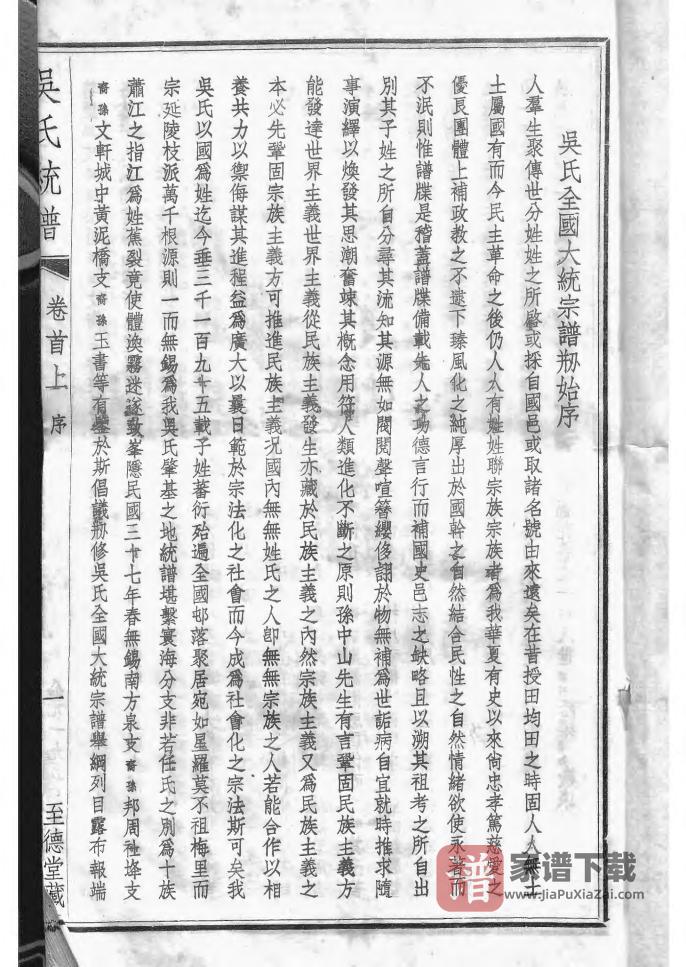 吳氏全國大統宗譜剙始序
人羣生聚傳世分姓姓之所啓或採自國邑或取諸名號由來遠矣在昔授田均田之時固人人無土
土屬國有而今民主革命之後仍人人有姓姓聯宗族宗族者爲我華夏有史以來尙忠孝篤慈愛之
優良團體上補政教之不逮下臻風化之純厚出於國幹之自然結合民性之自然情緒欲使永著而
不泯則惟譜牒是稽蓋譜牒備載先人之功德言行而補國史邑志之缺略且以溯其祖考之所自出
別其子姓之所自分尋其流知其源無如閥閱聲喧簪纓侈詡於物無補爲世詬病自宜就時推求隨
事演繹以煥發其思潮奮竦其概念用符人類進化不斷之原則孫中山先生有言鞏固民族主義方
能發達世界主義世界主義從民族主義發生亦藏於民族主義之內然宗族主義又爲民族主義之
本必先鞏固宗族主義方可推進民族主義況國內無無姓氏之人卽無無宗族之人若能合作以相
養共力以禦侮謀其進程益爲廣大以曩日範於宗法化之社會而今成爲社會化之宗法斯可矣我
吳氏以國爲姓迄今垂三千一百九十五載子姓蕃衍殆遍全國邨落聚居宛如星羅莫不祖梅里而
宗延陵枝派萬千根源則一而無錫爲我吳氏肇基之地統譜堪繫寰海分支非若任氏之別爲十族
蕭江之指江爲姓蕉裂竟使體渙霧迷遂致峯隱民國三十七年春無錫南方泉支裔孫邦周社埄支
裔孫文軒城中黃泥橋支裔孫玉書等有鑒於斯倡議剙修吳氏全國大統宗譜舉綱列目露布報端
吳氏統譜
卷首上
序
一
至德堂藏
譜
家谱下载
www.JiaPuXiaZai.com